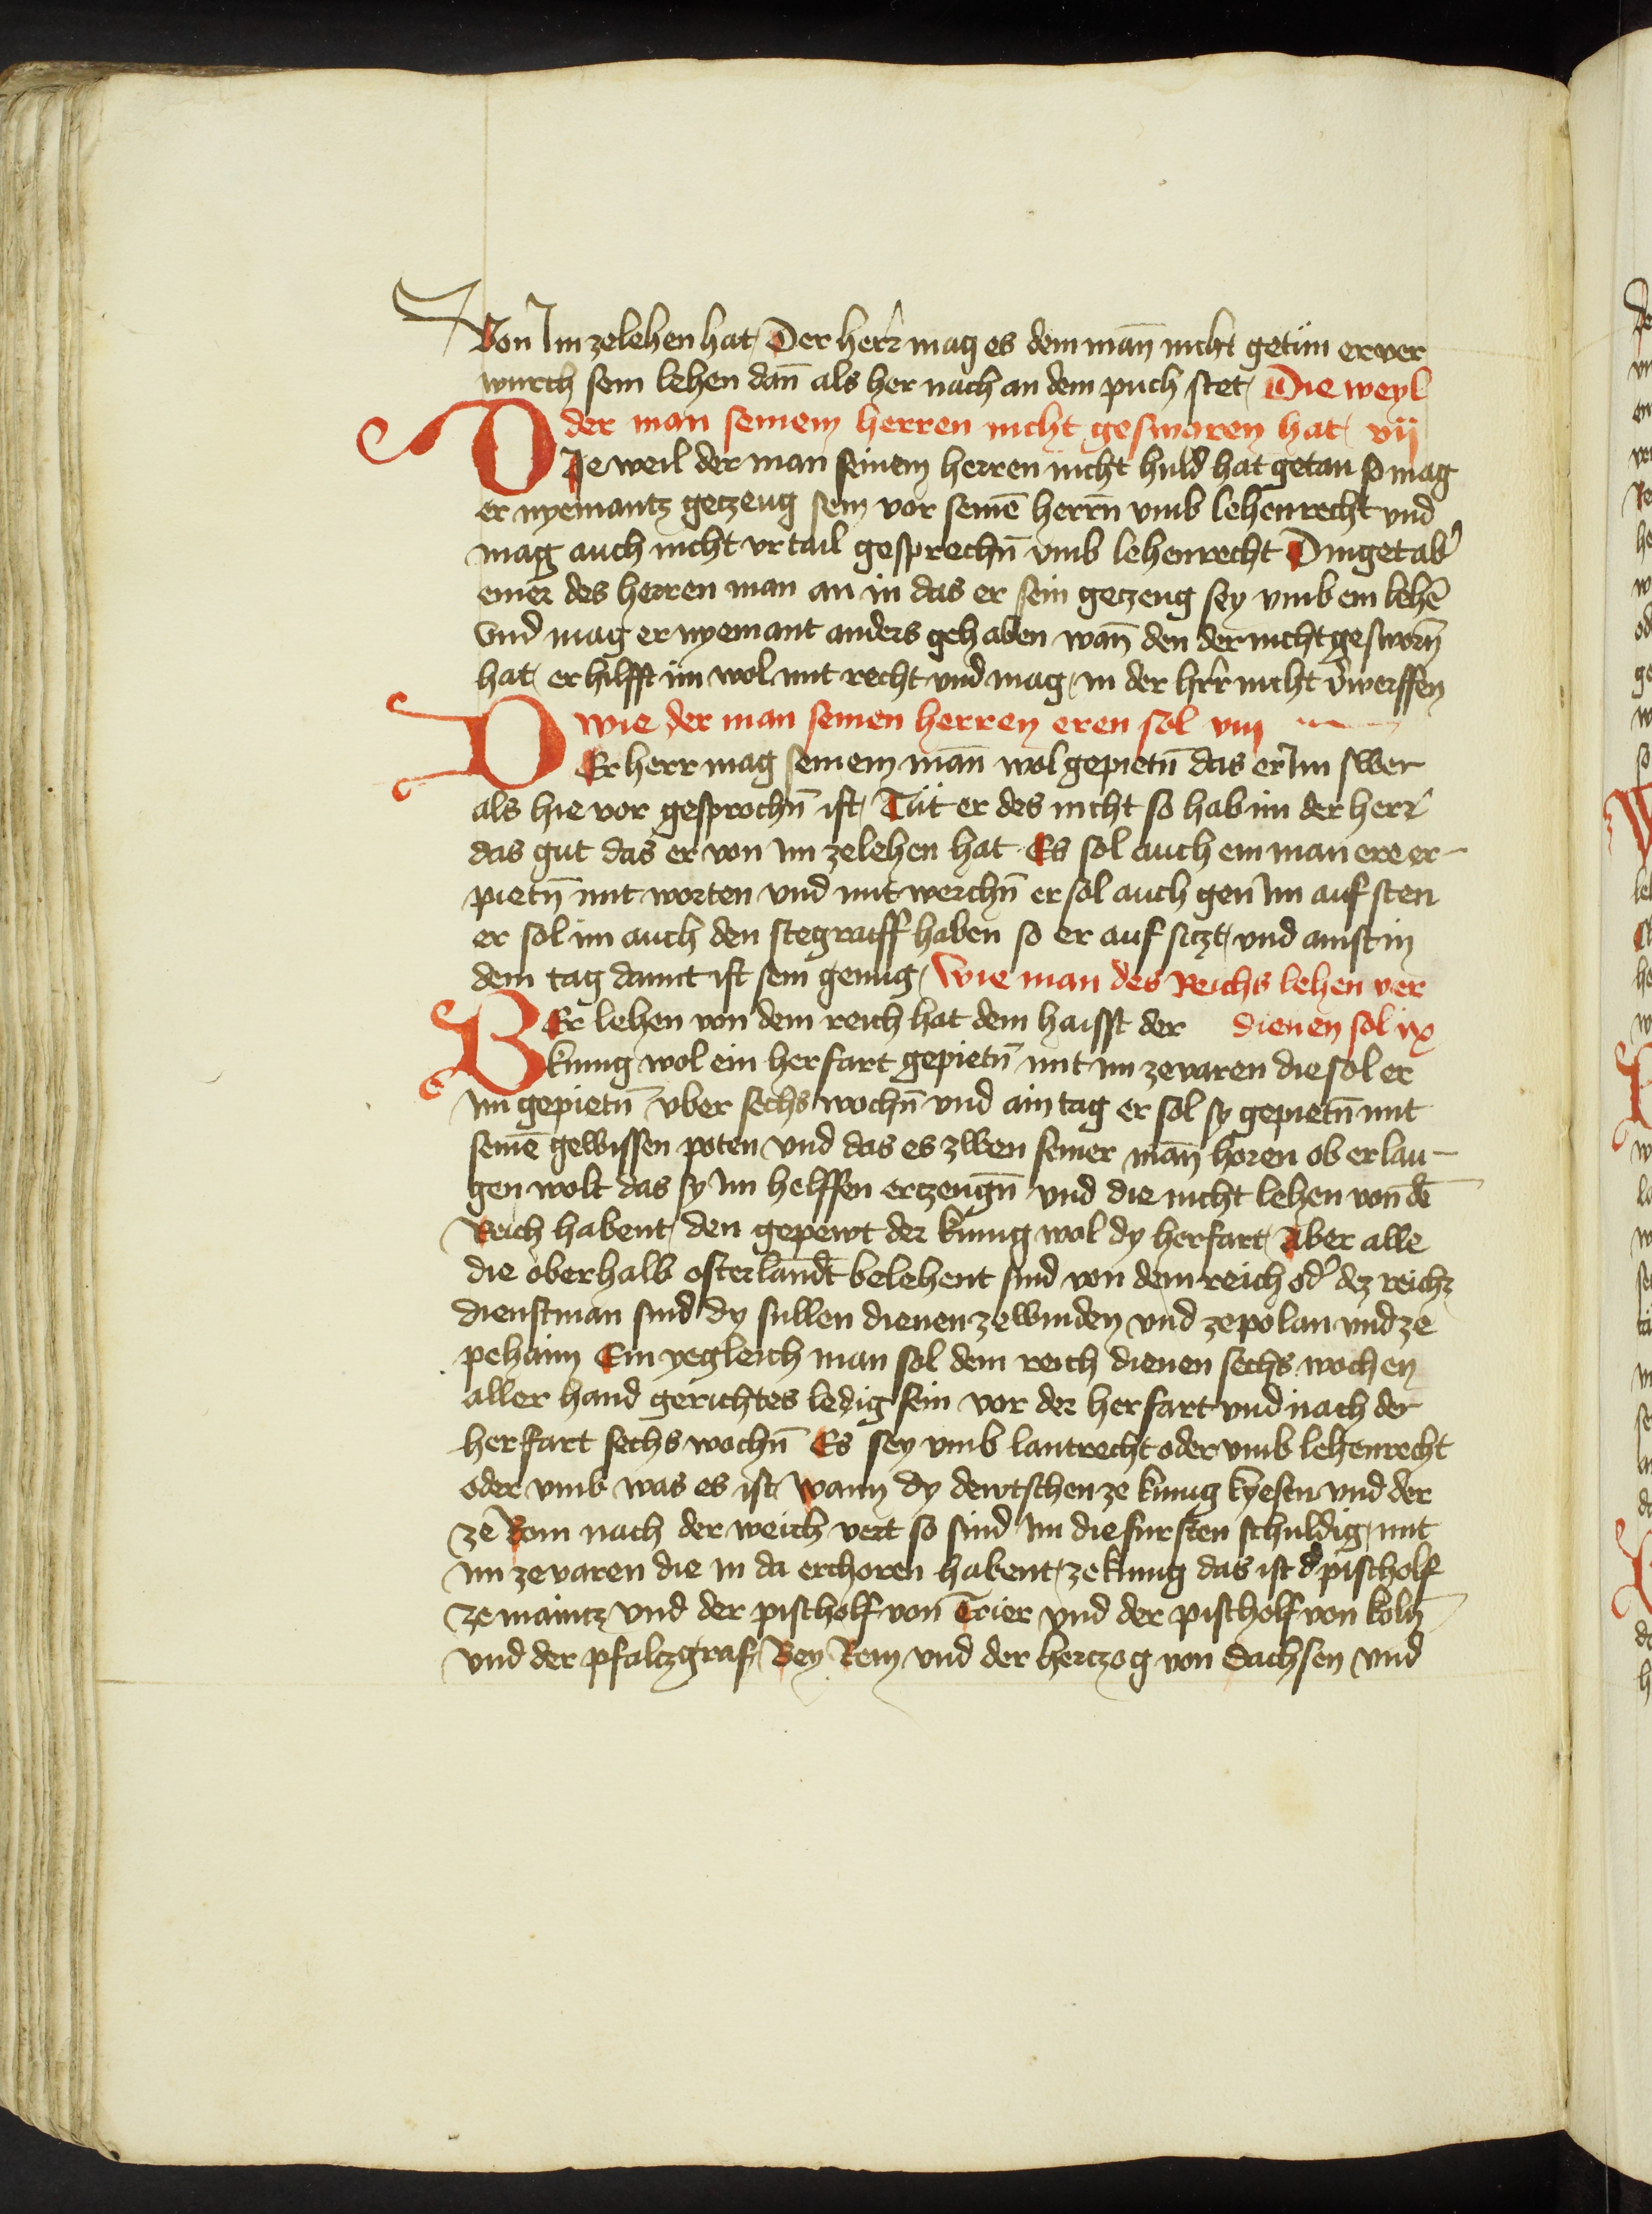 Von Im zelehen hat / Der herr mag es dem mañ nicht getůn er ver
wurch sein lehen dañ als her nach an dem puch stet / Die weyl
der man seinem herren nicht geswaren hat / vij
DJe weil der man seinem herren nicht huld hat getan so mag
er nyemantz geczeug sein vor seinē herrn̄ vmb lehenrecht vnd
mag auch nicht vrtail gesprechn̄ vmb lehenrecht Dinget ab̕
einer des herren man an in das er sein geczeug sey vmb ein lehē
vnd mag er nyemant anders gehaben wañ den der nicht gesworn̄
hat / er hilfft im wol mit recht vnd mag / in der hr̄r nicht v̕werffen
Wie der man seinen herren eren sol viij
DEr herr mag seinem mañ wol gepietn̄ das er Im swer
als hie vor gesprochn̄ ist / Tůt er des nicht so hab im der herr
das gut das er von im zelehen hat Es sol auch ein man ere er-
pietn̄ mit worten vnd mit werchn̄ er sol auch gen im auf sten
er sol im auch den stegraiff haben so er auf siczt / vnd ainst in
dem tag damit ist sein genug / Wie man des Reichs lehen ver
WEr lehen von dem reich hat dem haisst der dienen sol ix
kunig wol ein herfart gepietn̄ mit im zevaren die sol er
im gepietn̄ vber sechs wochn̄ vnd ain tag er sol sy gepietn̄ mit
seinē gewissen poten vnd das es zwen seiner mañ horen ob er lau-
gen wolt das sy im helffen erczeugn̄ vnd die nicht lehen von dē
Reich habent / den gepewt der kunig wol dy herfart / Aber alle
die oberhalb osterlandt belehent sind von dem reich od̕ dez reichz
dienstman sind dy sullen dienen ze winden vnd ze polan vnd ze
pehaim Ein yegleich man sol dem reich dienen sechs wochen
aller hand gerichtes ledig sein vor der herfart vnd nach der
herfart sechs wochn̄ Es sey vmb lantrecht oder vmb lehenrecht
oder vmb was es ist Wann dy dewtschen ze kunig kyesen vnd der
ze Rom nach der weich vert so sind im die fursten schuldig / mit
im zevaren die in da erchoren habent / ze kunig das ist d̕ pischolf
ze maintz vnd der pischolf von Trier vnd der pischolf von koln̄
vnd der pfalczgraf / Bey Rein vnd der herczog von Sachsen vnd